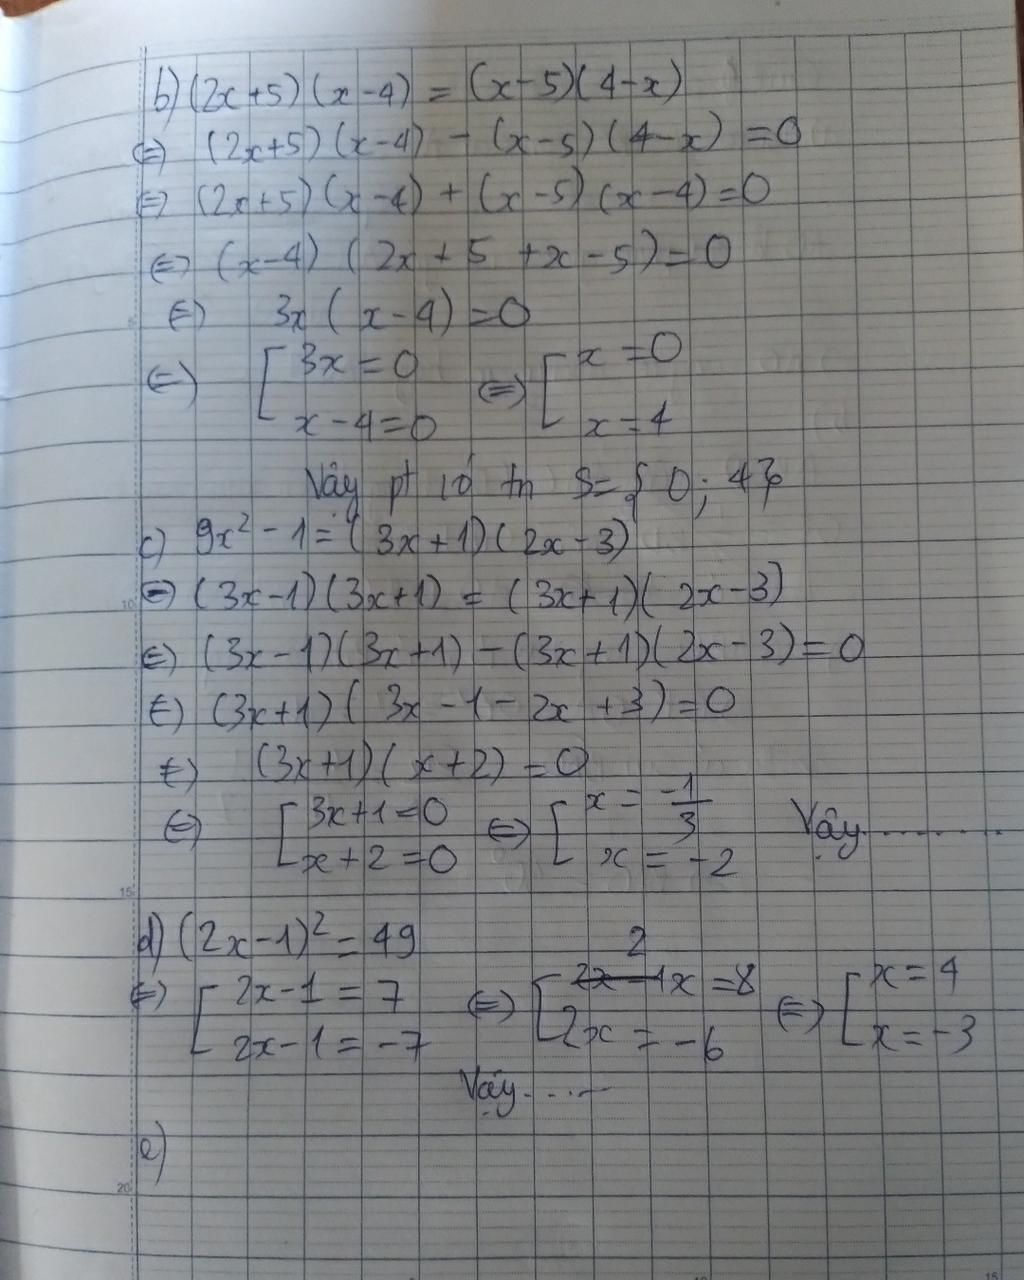 b) (2x+5)(x-4) = (x-5)(4-x)
⇔ (2x+5)(x-4) - (x-5)(4-x) = 0
⇔ (2x+5)(x-4) + (x-5)(x-4) = 0
⇔ (x-4)(2x+5+x-5) = 0
⇔ 3x(x-4) = 0
⇔ [ 3x = 0 ⇔ [ x = 0
x - 4 = 0 x = 4
Vậy pt có tn S = { 0; 4}
c) 9x² - 1 = (3x+1)(2x-3)
⇔ (3x-1)(3x+1) = (3x+1)(2x-3)
⇔ (3x-1)(3x+1) - (3x+1)(2x-3) = 0
⇔ (3x+1)(3x-1-2x+3) = 0
⇔ (3x+1)(x+2) = 0
⇔ [ 3x+1 = 0 ⇔ [ x = -1/3 Vậy........
x+2 = 0 x = -2
d) (2x-1)² = 49
⇔ [ 2x-1 = 7 ⇔ [ 2x = 8 ⇔ [ x = 4
2x-1 = -7 2x = -6 x = -3
Vậy.....
e)